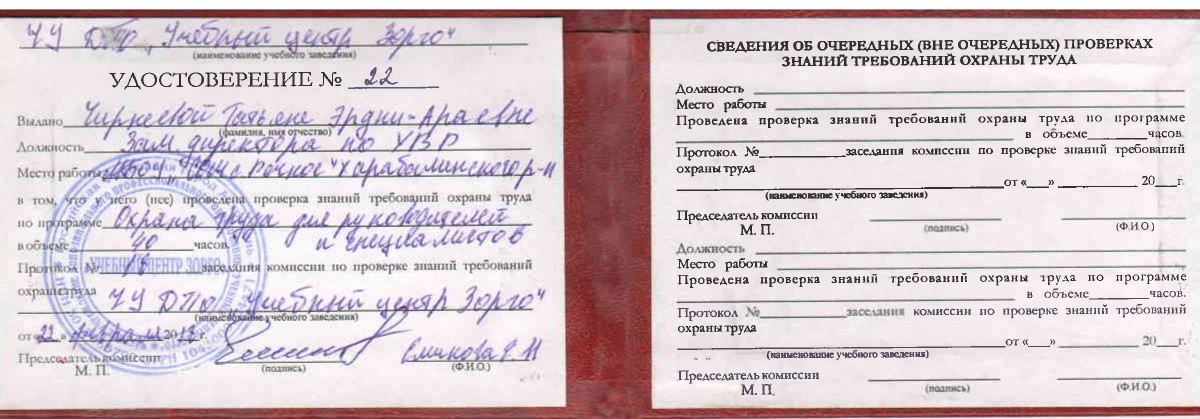 ЧУ ДПО „Учебный центр Зорго"
(наименование учебного заведения)
УДОСТОВЕРЕНИЕ № 22
Выдано Чирнеевой Татьяне Эрдни-Араевне
(фамилия, имя отчество)
Должность Зам. директора по УВР
Место работы МБОУ „ с Речное" Харабалинского р-н
в том, что у него (нее) проведена проверка знаний требований охраны труда
по программе Охрана труда для руководителей
и специалистов
в объеме 40 часов.
Протокол № 18 заседания комиссии по проверке знаний требований
охраны труда ЧУ ДПО „Учебный центр Зорго"
(наименование учебного заведения)
от «22» февраля 2018 г.
Председатель комиссии
М. П.
(подпись)
(Ф.И.О.)
УЧЕБНЫЙ ЦЕНТР ЗОРГО
СВЕДЕНИЯ ОБ ОЧЕРЕДНЫХ (ВНЕ ОЧЕРЕДНЫХ) ПРОВЕРКАХ
ЗНАНИЙ ТРЕБОВАНИЙ ОХРАНЫ ТРУДА
Должность
Место работы
Проведена проверка знаний требований охраны труда по программе
в объеме часов.
Протокол № заседания комиссии по проверке знаний требований
охраны труда
от « » 20 г.
(наименование учебного заведения)
Председатель комиссии
М. П. (подпись) (Ф.И.О.)
Должность
Место работы
Проведена проверка знаний требований охраны труда по программе
в объеме часов.
Протокол № заседания комиссии по проверке знаний требований
охраны труда
от « » 20 г.
(наименование учебного заведения)
Председатель комиссии
М. П. (подпись) (Ф.И.О.)